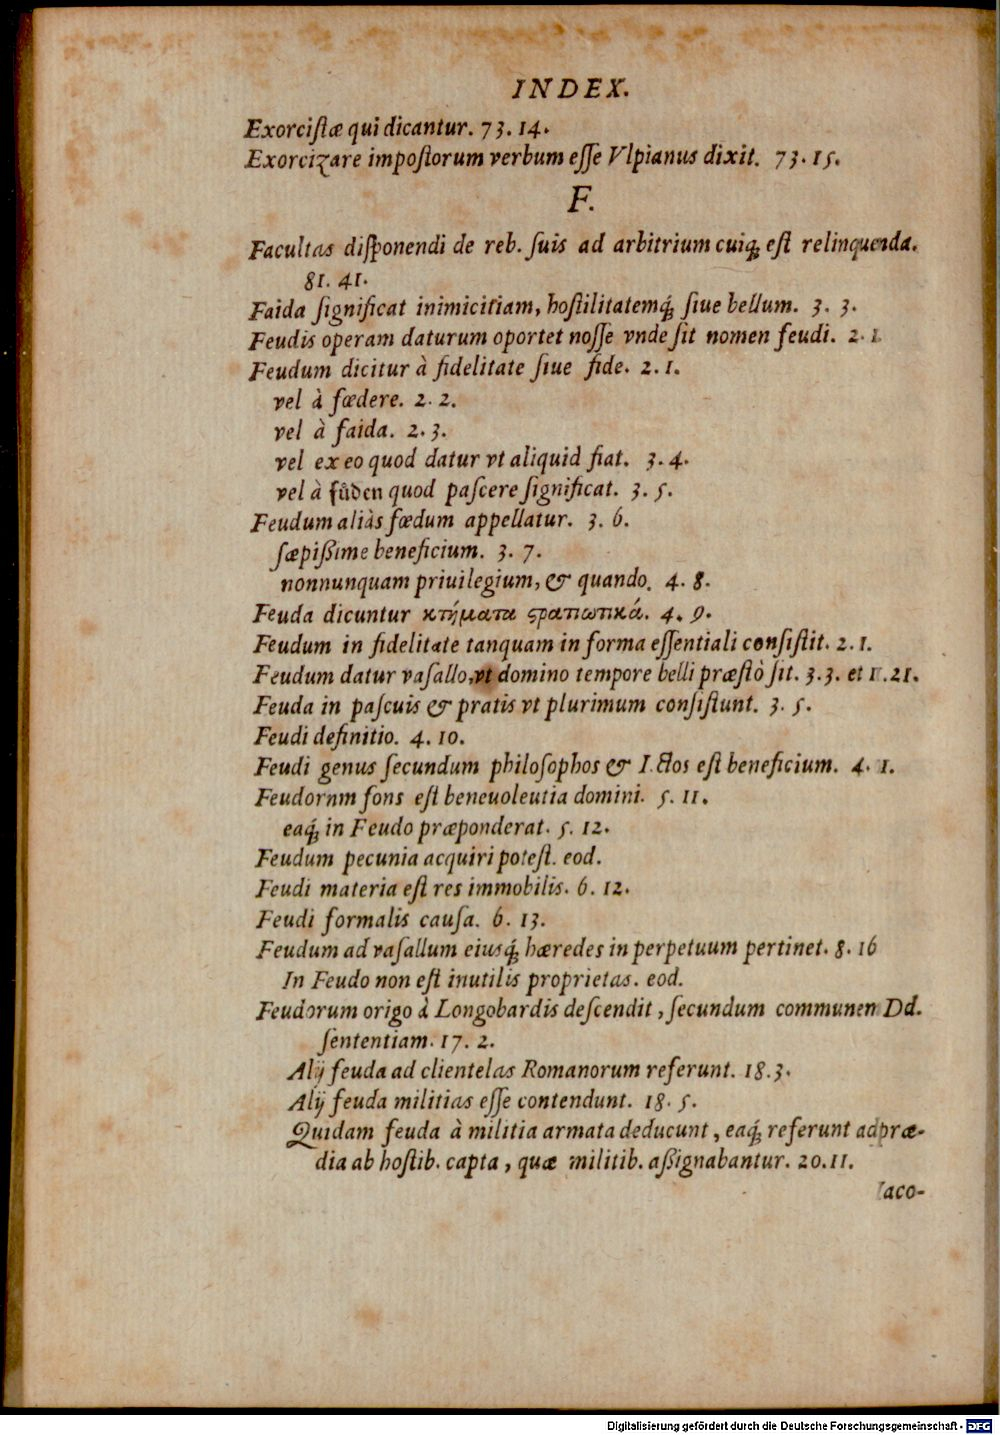 INDEX.
Exorcistæ qui dicantur. 73. 14.
Exorcizare impostorum verbum esse Vlpianus dixit. 73. 15.
F.
Facultas disponendi de reb. suis ad arbitrium cuiq́; est relinquenda.
81. 41.
Faida significat inimicitiam, hostilitatemq́; siue bellum. 3. 3.
Feudis operam daturum oportet nosse vnde sit nomen feudi. 2. 1
Feudum dicitur à fidelitate siue fide. 2. 1.
vel à fœdere. 2. 2.
vel à faida. 2. 3.
vel ex eo quod datur vt aliquid fiat. 3. 4.
vel à fůden quod pascere significat. 3. 5.
Feudum aliàs fœdum appellatur. 3. 6.
sæpißime beneficium. 3. 7.
nonnunquam priuilegium, & quando. 4. 8.
Feuda dicuntur κτήματα ϛρατιωτικά. 4. 9.
Feudum in fidelitate tanquam in forma essentiali consistit. 2. 1.
Feudum datur vasallo, vt domino tempore belli præstò sit. 3. 3. et 11. 21.
Feuda in pascuis & pratis vt plurimum consistunt. 3. 5.
Feudi definitio. 4. 10.
Feudi genus secundum philosophos & I. Ctos est beneficium. 4. 1.
Feudornm fons est beneuoleutia domini. 5. 11.
eaq́; in Feudo præponderat. 5. 12.
Feudum pecunia acquiri potest. eod.
Feudi materia est res immobilis. 6. 12.
Feudi formalis causa. 6. 13.
Feudum ad vasallum eiusq́; hæredes in perpetuum pertinet. 8. 16
In Feudo non est inutilis proprietas. eod.
Feudorum origo à Longobardis descendit, secundum communen Dd.
sententiam. 17. 2.
Alij feuda ad clientelas Romanorum referunt. 18. 3.
Alij feuda militias esse contendunt. 18. 5.
Quidam feuda à militia armata deducunt, eaq́; referunt ad præ-
dia ab hostib. capta, quæ militib. aßignabantur. 20. 11.
Iaco-
Digitalisierung gefördert durch die Deutsche Forschungsgemeinschaft - DFG